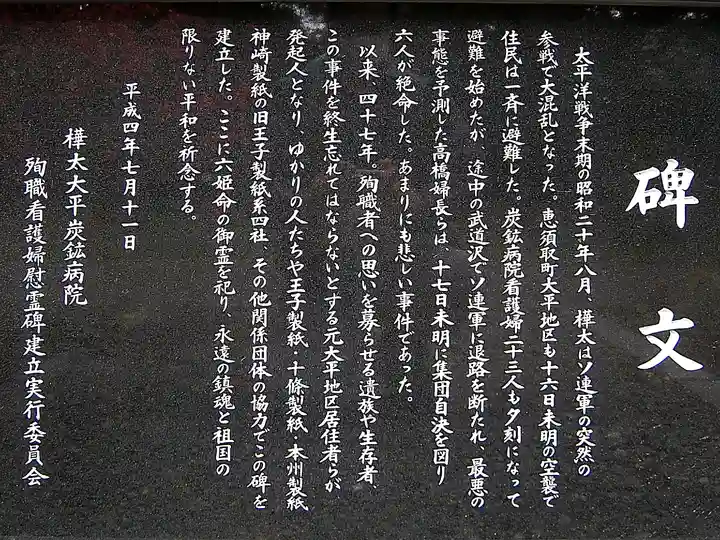 碑文
太平洋戦争末期の昭和二十年八月、樺太はソ連軍の突然の
参戦で大混乱となった。恵須取町大平地区も十六日未明の空襲で
住民は一斉に避難した。炭鉱病院看護婦二十三人も夕刻になって
避難を始めたが、途中の武道沢でソ連軍に退路を断たれ、最悪の
事態を予測した高橋婦長らは、十七日未明に集団自決を図り
六人が絶命した。あまりにも悲しい事件であった。
以来、四十七年。殉職者への思いを募らせる遺族や生存者、
この事件を終生忘れてはならないとする元大平地区居住者らが
発起人となり、ゆかりの人たちや王子製紙・十條製紙・本州製紙
神崎製紙の旧王子製紙系四社、その他関係団体の協力でこの碑を
建立した。ここに六姫命の御霊を祀り、永遠の鎮魂と祖国の
限りない平和を祈念する。
平成四年七月十一日
樺太大平炭鉱病院
殉職看護婦慰霊碑建立実行委員会